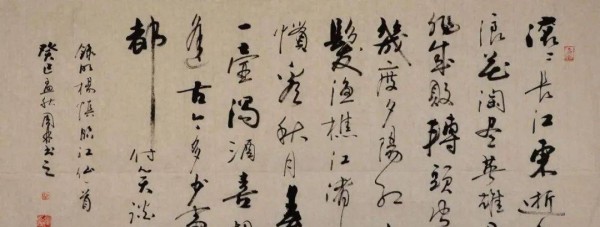 滚〻長江東逝
浪花淘尽英雄
非成败轉頭
幾度夕陽紅
髮漁樵江渚
慣看秋月春
一壶濁酒喜相
逢古今多少事
都付笑谈
錄明楊慎臨江仙一首
癸巳孟秋周书之